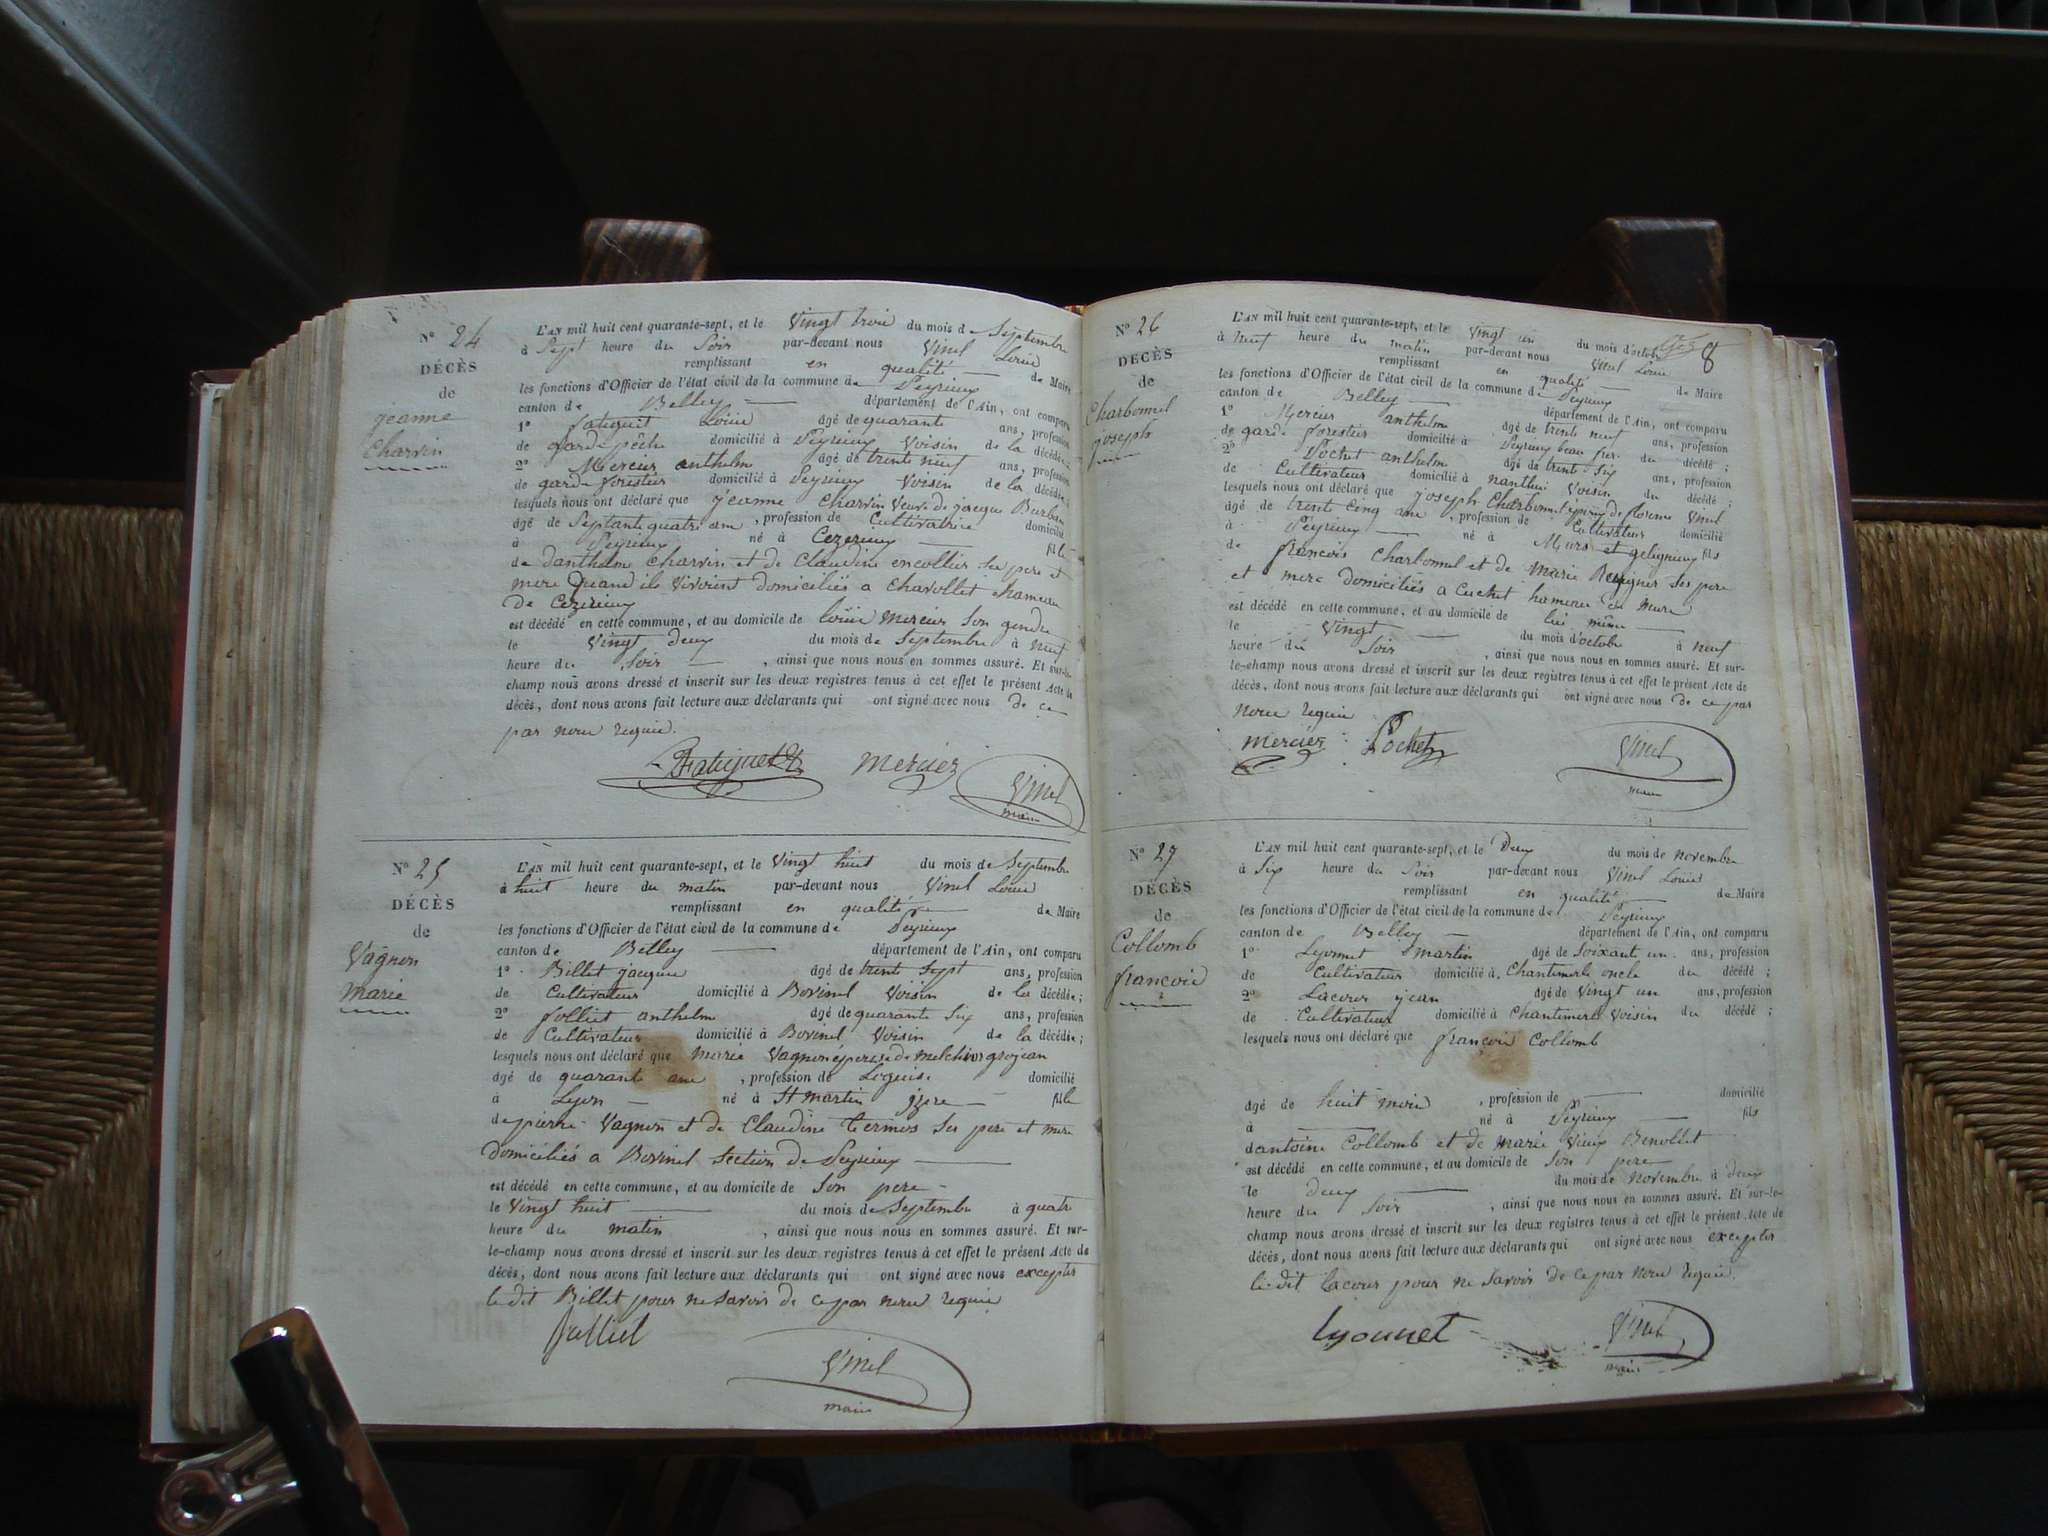 N° 24
DÉCÈS
de
jeanne
Charvin
L'AN mil huit cent quarante-sept, et le Vingt trois du mois de Septembre
à Sept heure du Soir par-devant nous Vinel Louis
remplissant en qualité de Maire
les fonctions d'Officier de l'état civil de la commune de Peyrieux
canton de Belley département de l'Ain, ont comparu
1° Fatiguet Louis âgé de quarante ans, profession
de garde pêche domicilié à Peyrieux Voisin de la décédée;
2° Mercier anthelme âgé de trente neuf ans, profession
de garde forestier domicilié à Peyrieux Voisin de la décédée;
lesquels nous ont déclaré que jeanne Charvin Veuve de jacques
âgé de Septante quatre ans, profession de Cultivatrice domicilié
à Peyrieux né à Cezerieux fille
de danthelme Charvin et de Claudine encollier Ses pere et
mere Quand ils Vivoint domiciliés a Charollet hameau
de Cezerieux
est décédé en cette commune, et au domicile de Louis Mercier Son gendre
le Vingt deux du mois de Septembre à neuf
heure du Soir, ainsi que nous nous en sommes assuré. Et sur-le-
champ nous avons dressé et inscrit sur les deux registres tenus à cet effet le présent Acte de
décès, dont nous avons fait lecture aux déclarants qui ont signé avec nous de ce
par nous requis.
Fatiguet mercier Vinel
maire
N° 25
DÉCÈS
de
Vagnon
Marie
L'AN mil huit cent quarante-sept, et le Vingt huit du mois de Septembre
à huit heure du matin par-devant nous Vinel Louis
remplissant en qualité de Maire
les fonctions d'Officier de l'état civil de la commune de Peyrieux
canton de Belley département de l'Ain, ont comparu
1° Billet jacques âgé de trente Sept ans, profession
de Cultivateur domicilié à Bovinel Voisin de la décédée;
2° Jolliet anthelme âgé de quarante Six ans, profession
de Cultivateur domicilié à Bovinel Voisin de la décédée;
lesquels nous ont déclaré que Marie Vagnon épouse de Melchior grosjean
âgé de quarante ans, profession de domicilié
à Lyon né à St martin fille
de pierre Vagnon et de Claudine Termos Ses pere et mere
domiciliés a Bovinel Section de Peyrieux
est décédé en cette commune, et au domicile de Son pere
le Vingt huit du mois de Septembre à quatre
heure du matin, ainsi que nous nous en sommes assuré. Et sur-
le-champ nous avons dressé et inscrit sur les deux registres tenus à cet effet le présent Acte de
décès, dont nous avons fait lecture aux déclarants qui ont signé avec nous excepter
le dit Billet pour ne Savoir de ce par nous requis
Jolliet
Vinel
maire
8
N° 26
DÉCÈS
de
Charbonnel
joseph
L'AN mil huit cent quarante-sept, et le Vingt un du mois d'octobre
à neuf heure du matin par-devant nous Vinel Louis
remplissant en qualité de Maire
les fonctions d'Officier de l'état civil de la commune de Peyrieux
canton de Belley département de l'Ain, ont comparu
1° Mercier anthelme âgé de trente neuf ans, profession
de garde forestier domicilié à Peyrieux beau frere du décédé;
2° Pochet anthelme âgé de trente Six ans, profession
de Cultivateur domicilié à nanthui Voisin du décédé;
lesquels nous ont déclaré que joseph Charbonnel époux de Vinel
âgé de trente Cinq ans, profession de Cultivateur domicilié
à Peyrieux né à Murs et gelignieux fils
de francois Charbonnel et de Marie Ses pere
et mere domiciliés a Cuchet hameau de Murs
est décédé en cette commune, et au domicile de lui même
le Vingt du mois d'octobre à neuf
heure du Soir, ainsi que nous nous en sommes assuré. Et sur-
le-champ nous avons dressé et inscrit sur les deux registres tenus à cet effet le présent Acte de
décès, dont nous avons fait lecture aux déclarants qui ont signé avec nous de ce par
nous requis
mercier Pochet Vinel
maire
N° 27
DÉCÈS
de
Collomb
francois
L'AN mil huit cent quarante-sept, et le Deux du mois de novembre
à Six heure du Soir par-devant nous Vinel Louis
remplissant en qualité de Maire
les fonctions d'Officier de l'état civil de la commune de Peyrieux
canton de Belley département de l'Ain, ont comparu
1° Lyonnet martin âgé de Soixante un ans, profession
de Cultivateur domicilié à Chantemerle oncle du décédé;
2° Lacour jean âgé de Vingt un ans, profession
de Cultivateur domicilié à Chantemerle Voisin du décédé;
lesquels nous ont déclaré que françois Collomb
âgé de huit mois, profession de domicilié
à né à Peyrieux fils
dantoine Collomb et de marie Benollet
est décédé en cette commune, et au domicile de Son pere
le deux du mois de novembre à deux
heure du Soir, ainsi que nous nous en sommes assuré. Et sur-le-
champ nous avons dressé et inscrit sur les deux registres tenus à cet effet le présent Acte de
décès, dont nous avons fait lecture aux déclarants qui ont signé avec nous excepter
le dit Lacour pour ne Savoir de ce par nous requis.
Lyonnet Vinel
maire